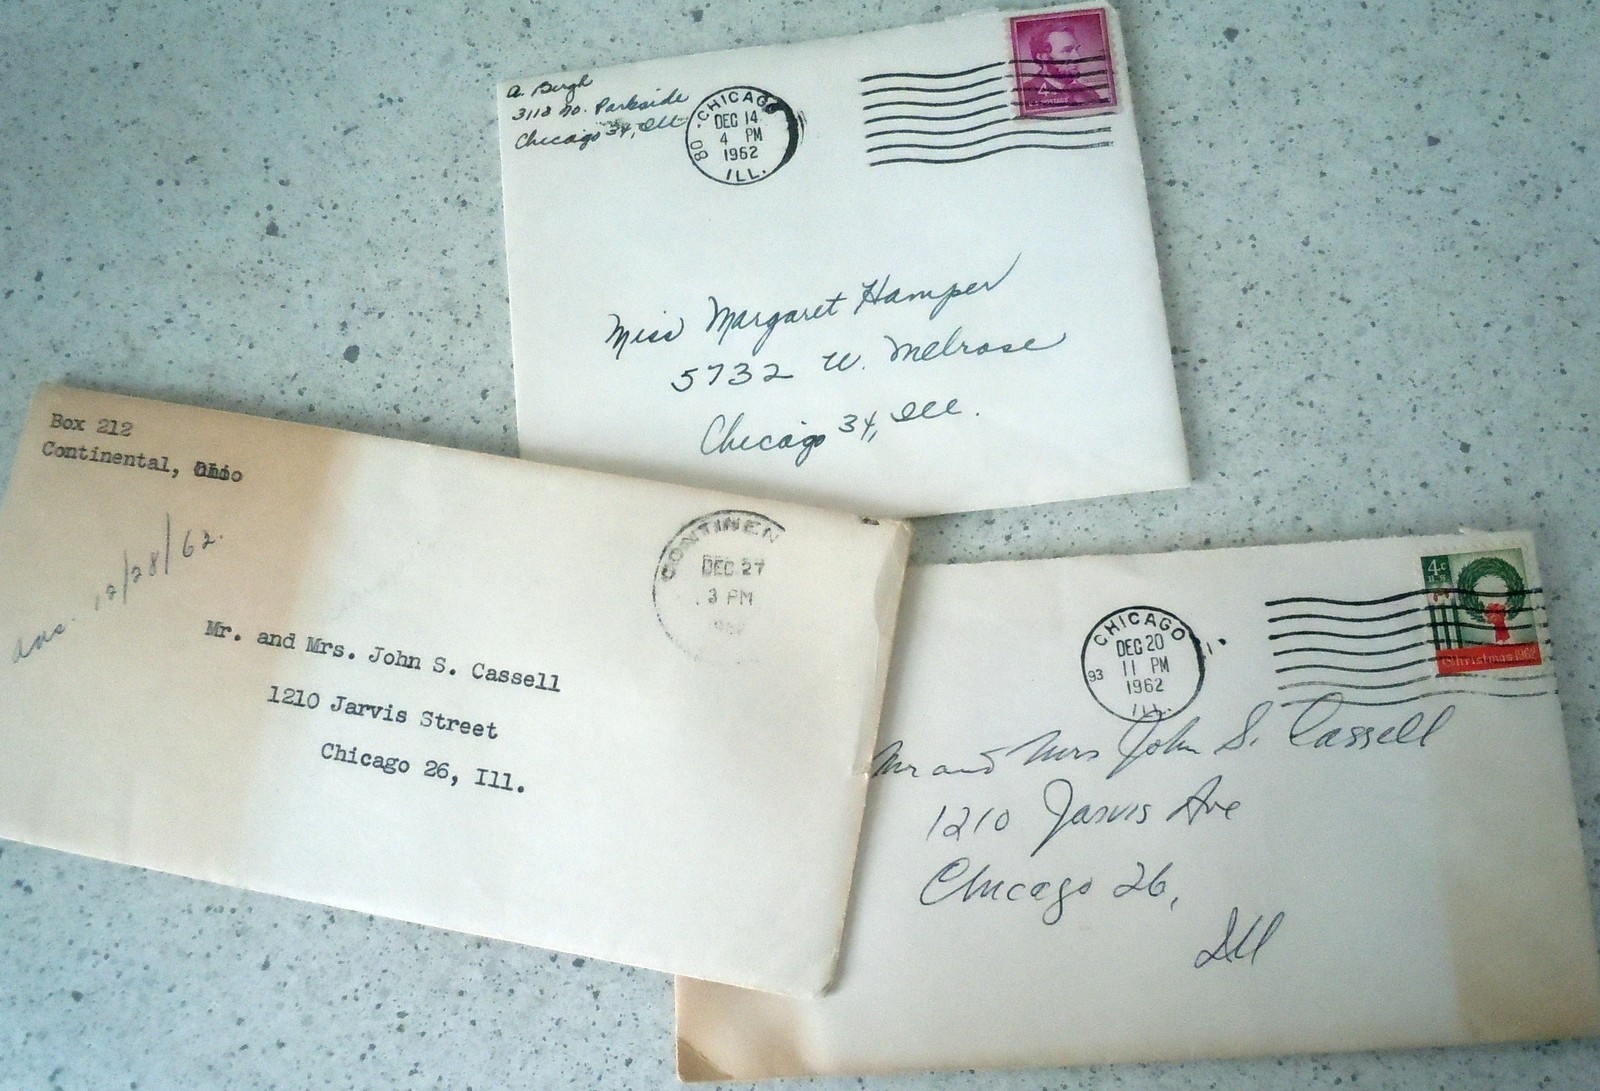 A. Bergh
3118 No. Parkside
Chicago 34, Ill
CHICAGO
DEC 14
4 PM
1962
80
ILL.
4¢
Miss Margaret Hamper
5732 W. Melrose
Chicago 34, Ill.
Box 212
Continental, Ohio
ans. 12/28/62.
CONTINEN
DEC 27
3 PM
Mr. and Mrs. John S. Cassell
1210 Jarvis Street
Chicago 26, Ill.
CHICAGO
DEC 20
11 PM
93
1962
ILL.
4¢
U.S.
Christmas 1962
Mr and Mrs John S. Cassell
1210 Jarvis Ave
Chicago 26,
Ill